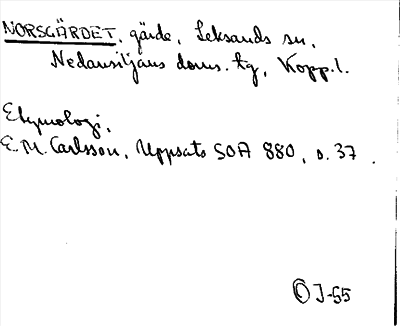 NORSGÄRDET, gärde, Leksands sn,
Nedansiljans doms. tg, Kopp. l.
Etymologi,
E. M. Carlsson, Uppsats SOA 880, s. 37.
J-55